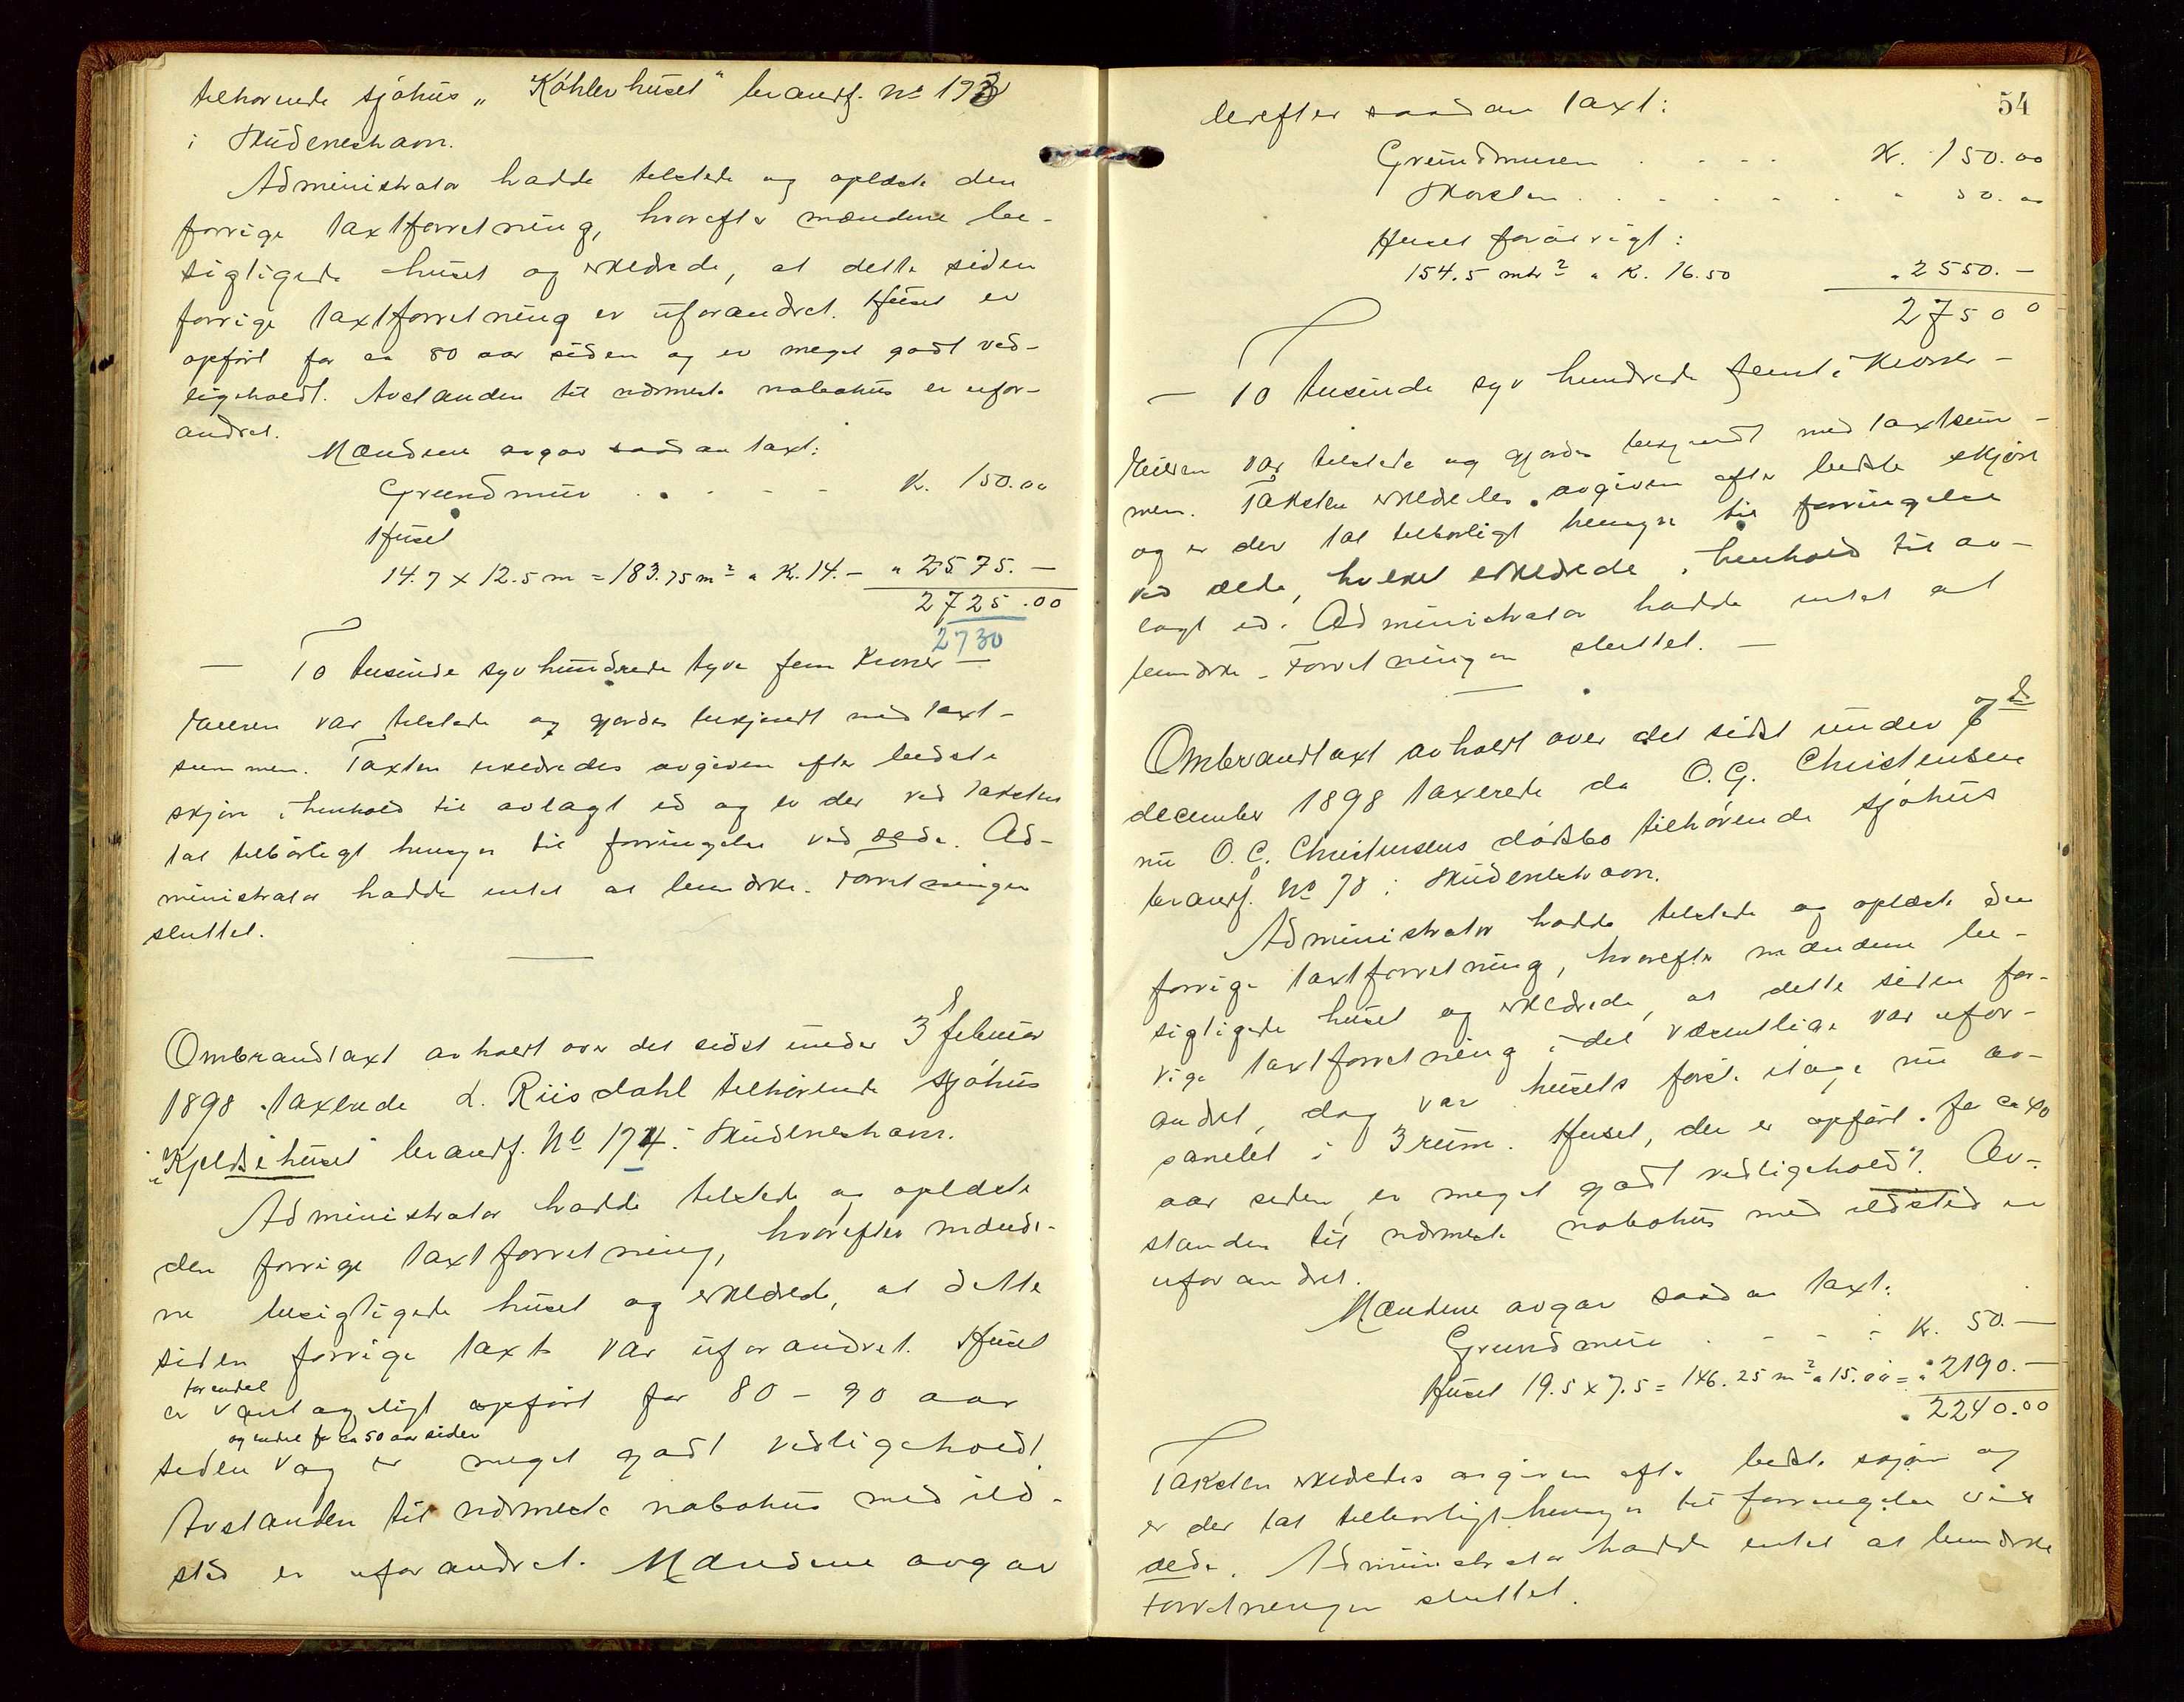 tilhørende sjøhus „Köhlerhuset“ brandf. No 193
i Skudeneshavn.
Administrator hadde tilstede og oplæste den
forrige taxtforretning, hvorefter mændene be-
sigtigede huset og erklærede, at dette siden
forrige taxtforretning er uforandret. Huset er
opført for ca 80 aar siden og er meget godt ved-
ligeholdt. Avstanden til nærmeste nabohus er ufor-
andret.
Mændene avgav saadan taxt:
Grundmur . . . . . K. 150.00
Huset
14.7 x 12.5 m = 183.75 m² a K. 14.— „ 2575.—
2725.00
2730
— To tusinde syv hundrede tyve fem Kroner —
Eieren var tilstede og gjordes bekjendt med taxt-
summen. Taxten erklæredes avgiven efter bedste
skjøn i henhold til avlagt ed og er der ved taksten
tat tilbørligt hensyn til forringelse ved ælde. Ad-
ministrator hadde intet at bemærke. Forretningen
sluttet.
Ombrandtaxt avholdt over det sidst under 3 februar
1898 taxerede L. Riisdahl tilhørende sjøhus
„Kjeldsehuset“ brandf. No 174 i Skudeneshavn.
Administrator hadde tilstede og oplæste
den forrige taxtforretning, hvorefter mænde-
ne besigtigede huset og erklærede, at dette
siden forrige taxt var uforandret. Huset
for endel
er antagligt opført for 80 - 90 aar
og endel for ca 50 aar siden
siden og er meget godt vedligeholdt.
Avstanden til nærmeste nabohus med ild-
sted er uforandret. Mændene avgav
54
derefter saadan taxt:
Grundmuren . . . . K. 150.00
Skorsten . . . . . . „ 50.00
Huset forøvrigt:
154.5 mtr² a K. 16.50 „ 2550.—
2750 0
— To tusinde syv hundrede femti Kroner —
Eieren var tilstede og gjordes bekjendt med taxtsum-
men. Taksten erklæredes avgiven efter bedste skjøn
og er der tat tilbørligt hensyn til forringelse
ved ælde, hvilket erklærede i henhold til av-
lagt ed. Administrator hadde intet at
bemærke. Forretningen sluttet. —
Ombrandtaxt avholdt over det sidst under 7de
december 1898 taxerede da O. G. Christensen
nu O. G. Christensens dødsbo tilhørende sjøhus
brandf. No 78 i Skudeneshavn.
Administrator hadde tilstede og oplæste den
forrige taxtforretning, hvorefter mændene be-
sigtigede huset og erklærede, at dette siden for-
rige taxtforretning i det væsentlige var ufor-
andret, dog var husets første etage nu av-
panelet i 3 rum. Huset, der er opført for ca 40
aar siden, er meget godt vedligeholdt. Av-
standen til nærmeste nabohus med ildsted er
uforandret.
Mændene avgav saadan taxt:
Grundmur . . . . K. 50.—
Huset 19.5 x 7.5 = 146.25 m² a 15.00 = „ 2190.—
„ 2240.00
Taksten erklæredes avgiven efter bedste skjøn og
er der tat tilbørligt hensyn til forringelse ved
ælde. Administrator hadde intet at bemærke
Forretningen sluttet.